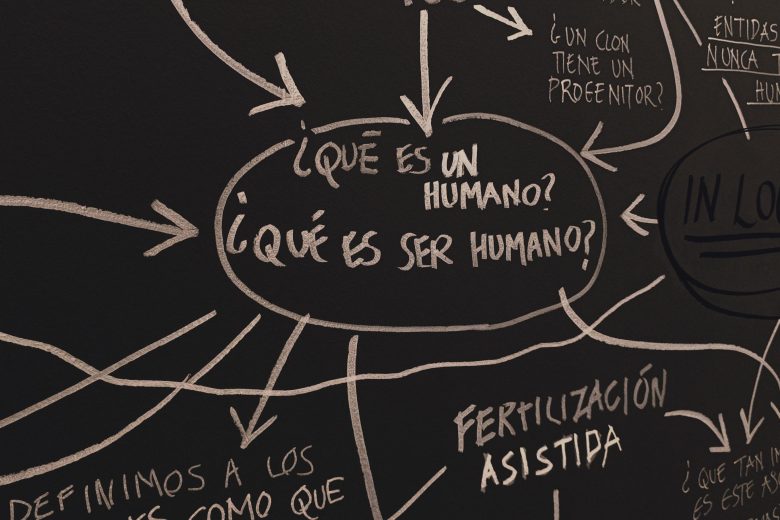 ¿UN CLON
TIENE UN
PROGENITOR?
ENTIDAS
NUNCA
¿QUÉ ES UN
HUMANO?
¿QUÉ ES SER HUMANO?
IN
FERTILIZACIÓN
ASISTIDA
DEFINIMOS A LOS
COMO QUE
¿QUE TAN
ES ESTE